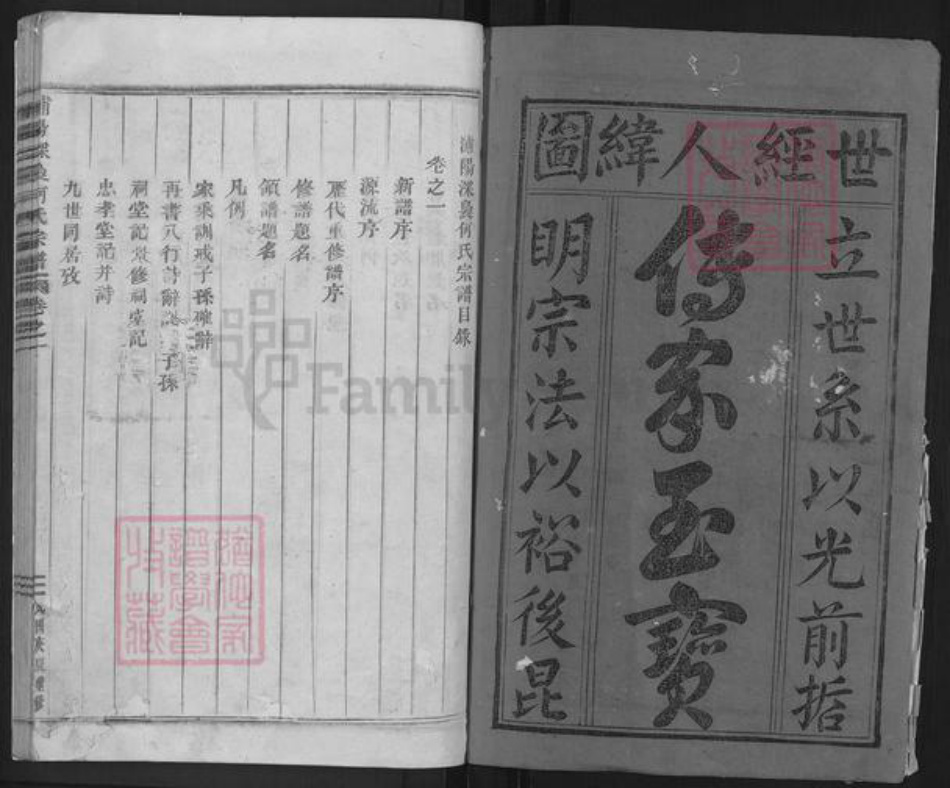 世經人緯圖
立世系以光前哲
傳家玉寶
明宗法以裕後昆
浦陽深裊何氏宗譜目錄
卷之一
新譜序
源流序
歷代重修譜序
修譜題名
領譜題名
凡例
家乘訓戒子孫確辭
再書八行詩辭 子孫
祠堂記 重修祠堂記
忠孝堂記并詩
九世同居攷
Family
譜學會
收藏